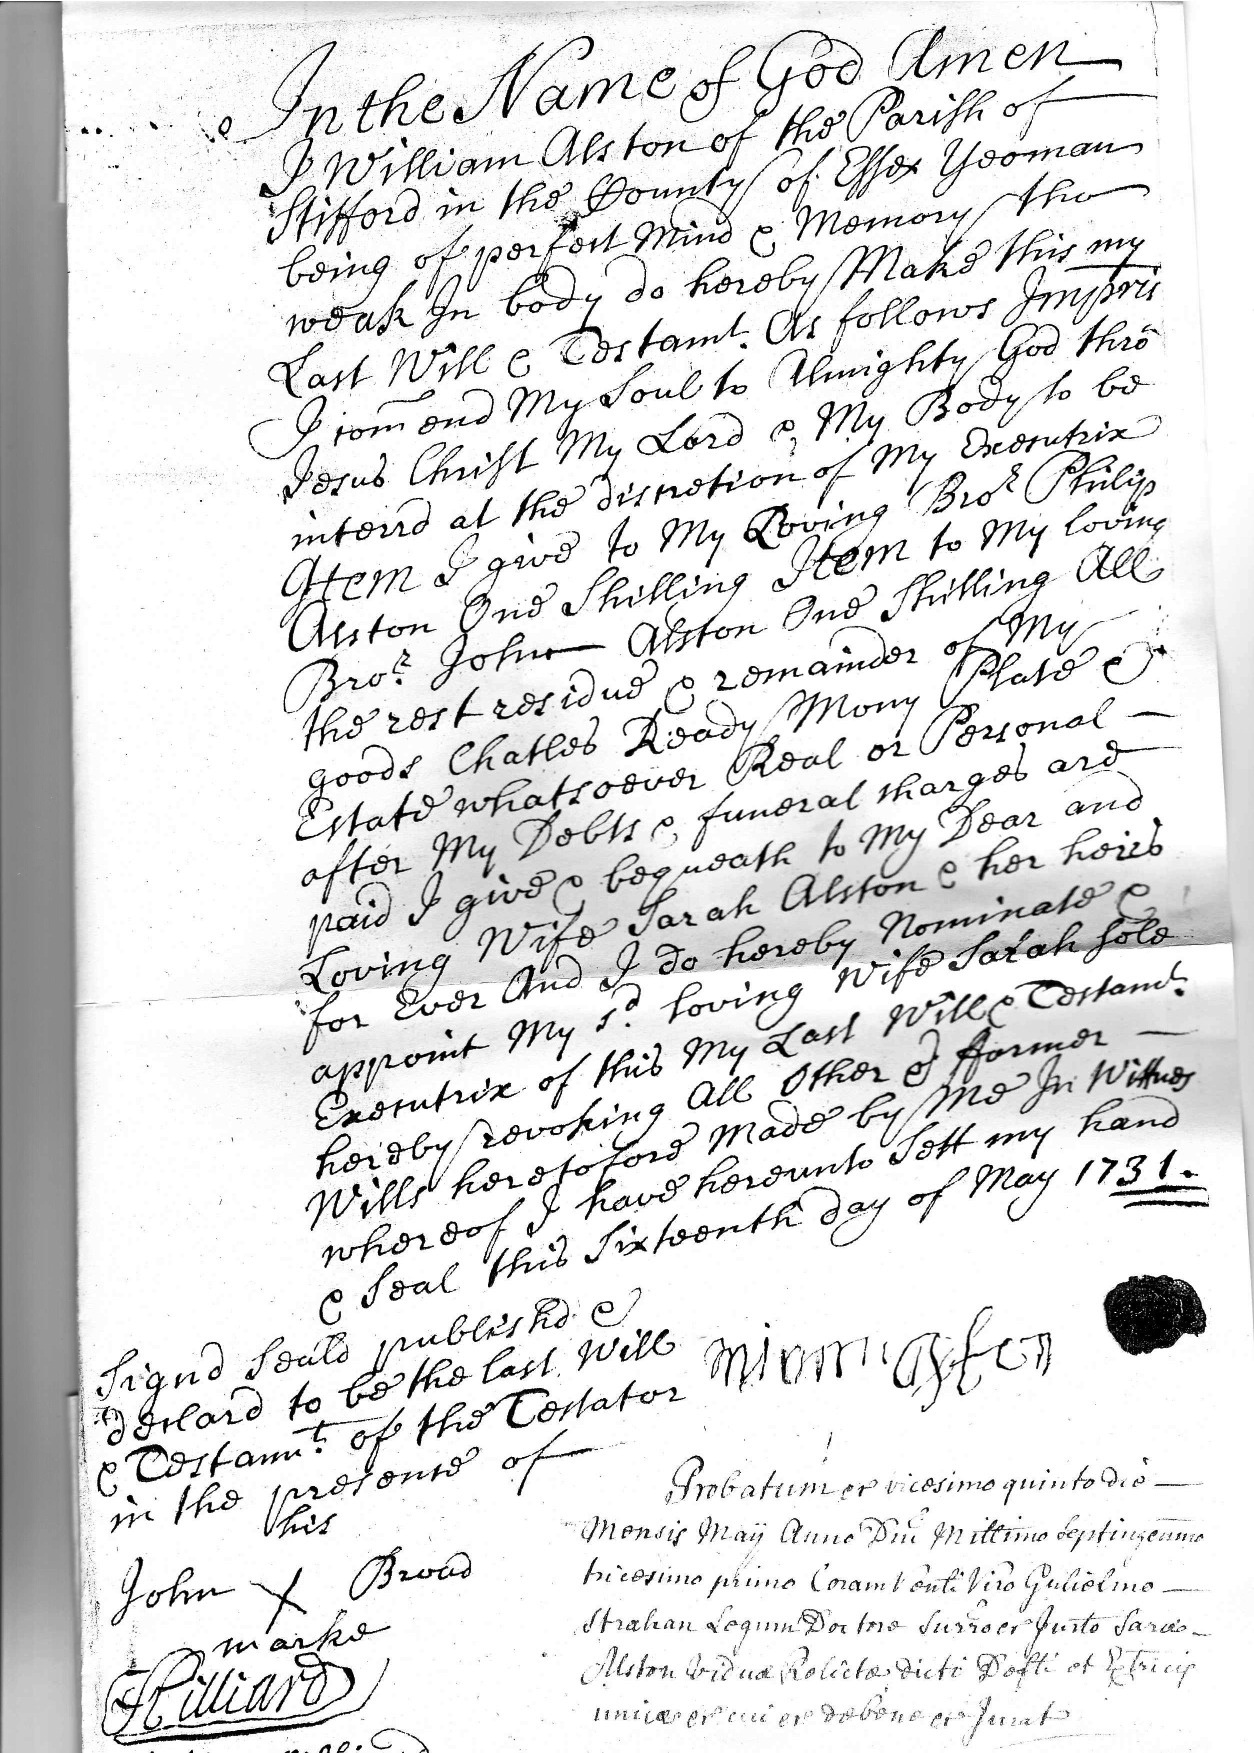 In the Name of God Amen
I William Alston of the Parish of
Stifford in the County of Essex Yeoman
being of perfect Mind & Memory tho
weak In body do hereby Make this my
Last Will & Testamt. As follows Impris
I com̄end My Soul to Almighty God thrō
Jesus Christ My Lord & My Body to be
interrd at the discretion of My Executrix
Item I give to My Loving Bror Philip
Alston One Shilling Item to My loving
Bror. John Alston One Shilling All
the rest residue & remainder of My
goods Chatles Ready Mony Plate &
Estate whatsoever Real or Personal
after My Debts & funeral charges are
paid I give & bequeath to My Dear and
Loving Wife Sarah Alston & her heirs
for Ever And I do hereby Nominate &
appoint My sd. loving Wife Sarah sole
Executrix of this My Last Will & Testamt.
hereby revoking All Other & former
Wills heretofore Made by Me In Wittnes
whereof I have hereunto Sett my hand
& Seal this Sixteenth day of May 1731.
Signd Seald publishd &
declard to be the last Will
& Testamt. of the Testator
in the presence of
his
John X Broad
marke
Hilliard
Probatum
vicesimo quinto die
Mensis Maij Anno Dni Millimo Septingenmo
tricesimo primo Coram Venli Viro Gulielmo
Strahan Legum Doctore Surro
Jurto Saræ
Alston Viduæ Relictæ dicti Defti et Extricis
unicæ
cui
de bene
Jurat